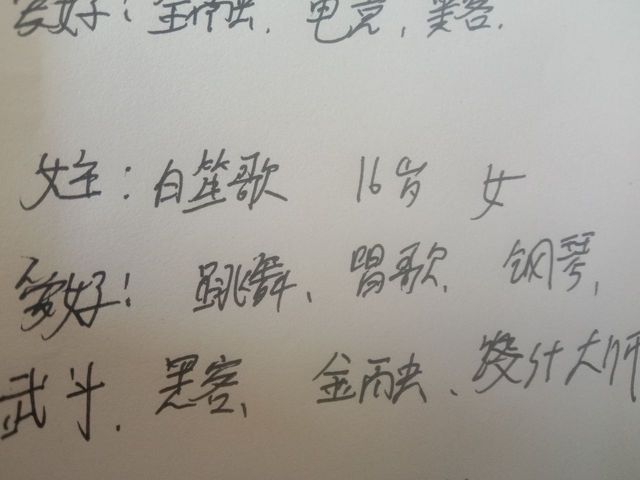 爱好：金融、电竞、黑客.
女主：白笙歌 16岁 女
爱好：跳舞、唱歌、钢琴、
武斗、黑客、金融、设计大师